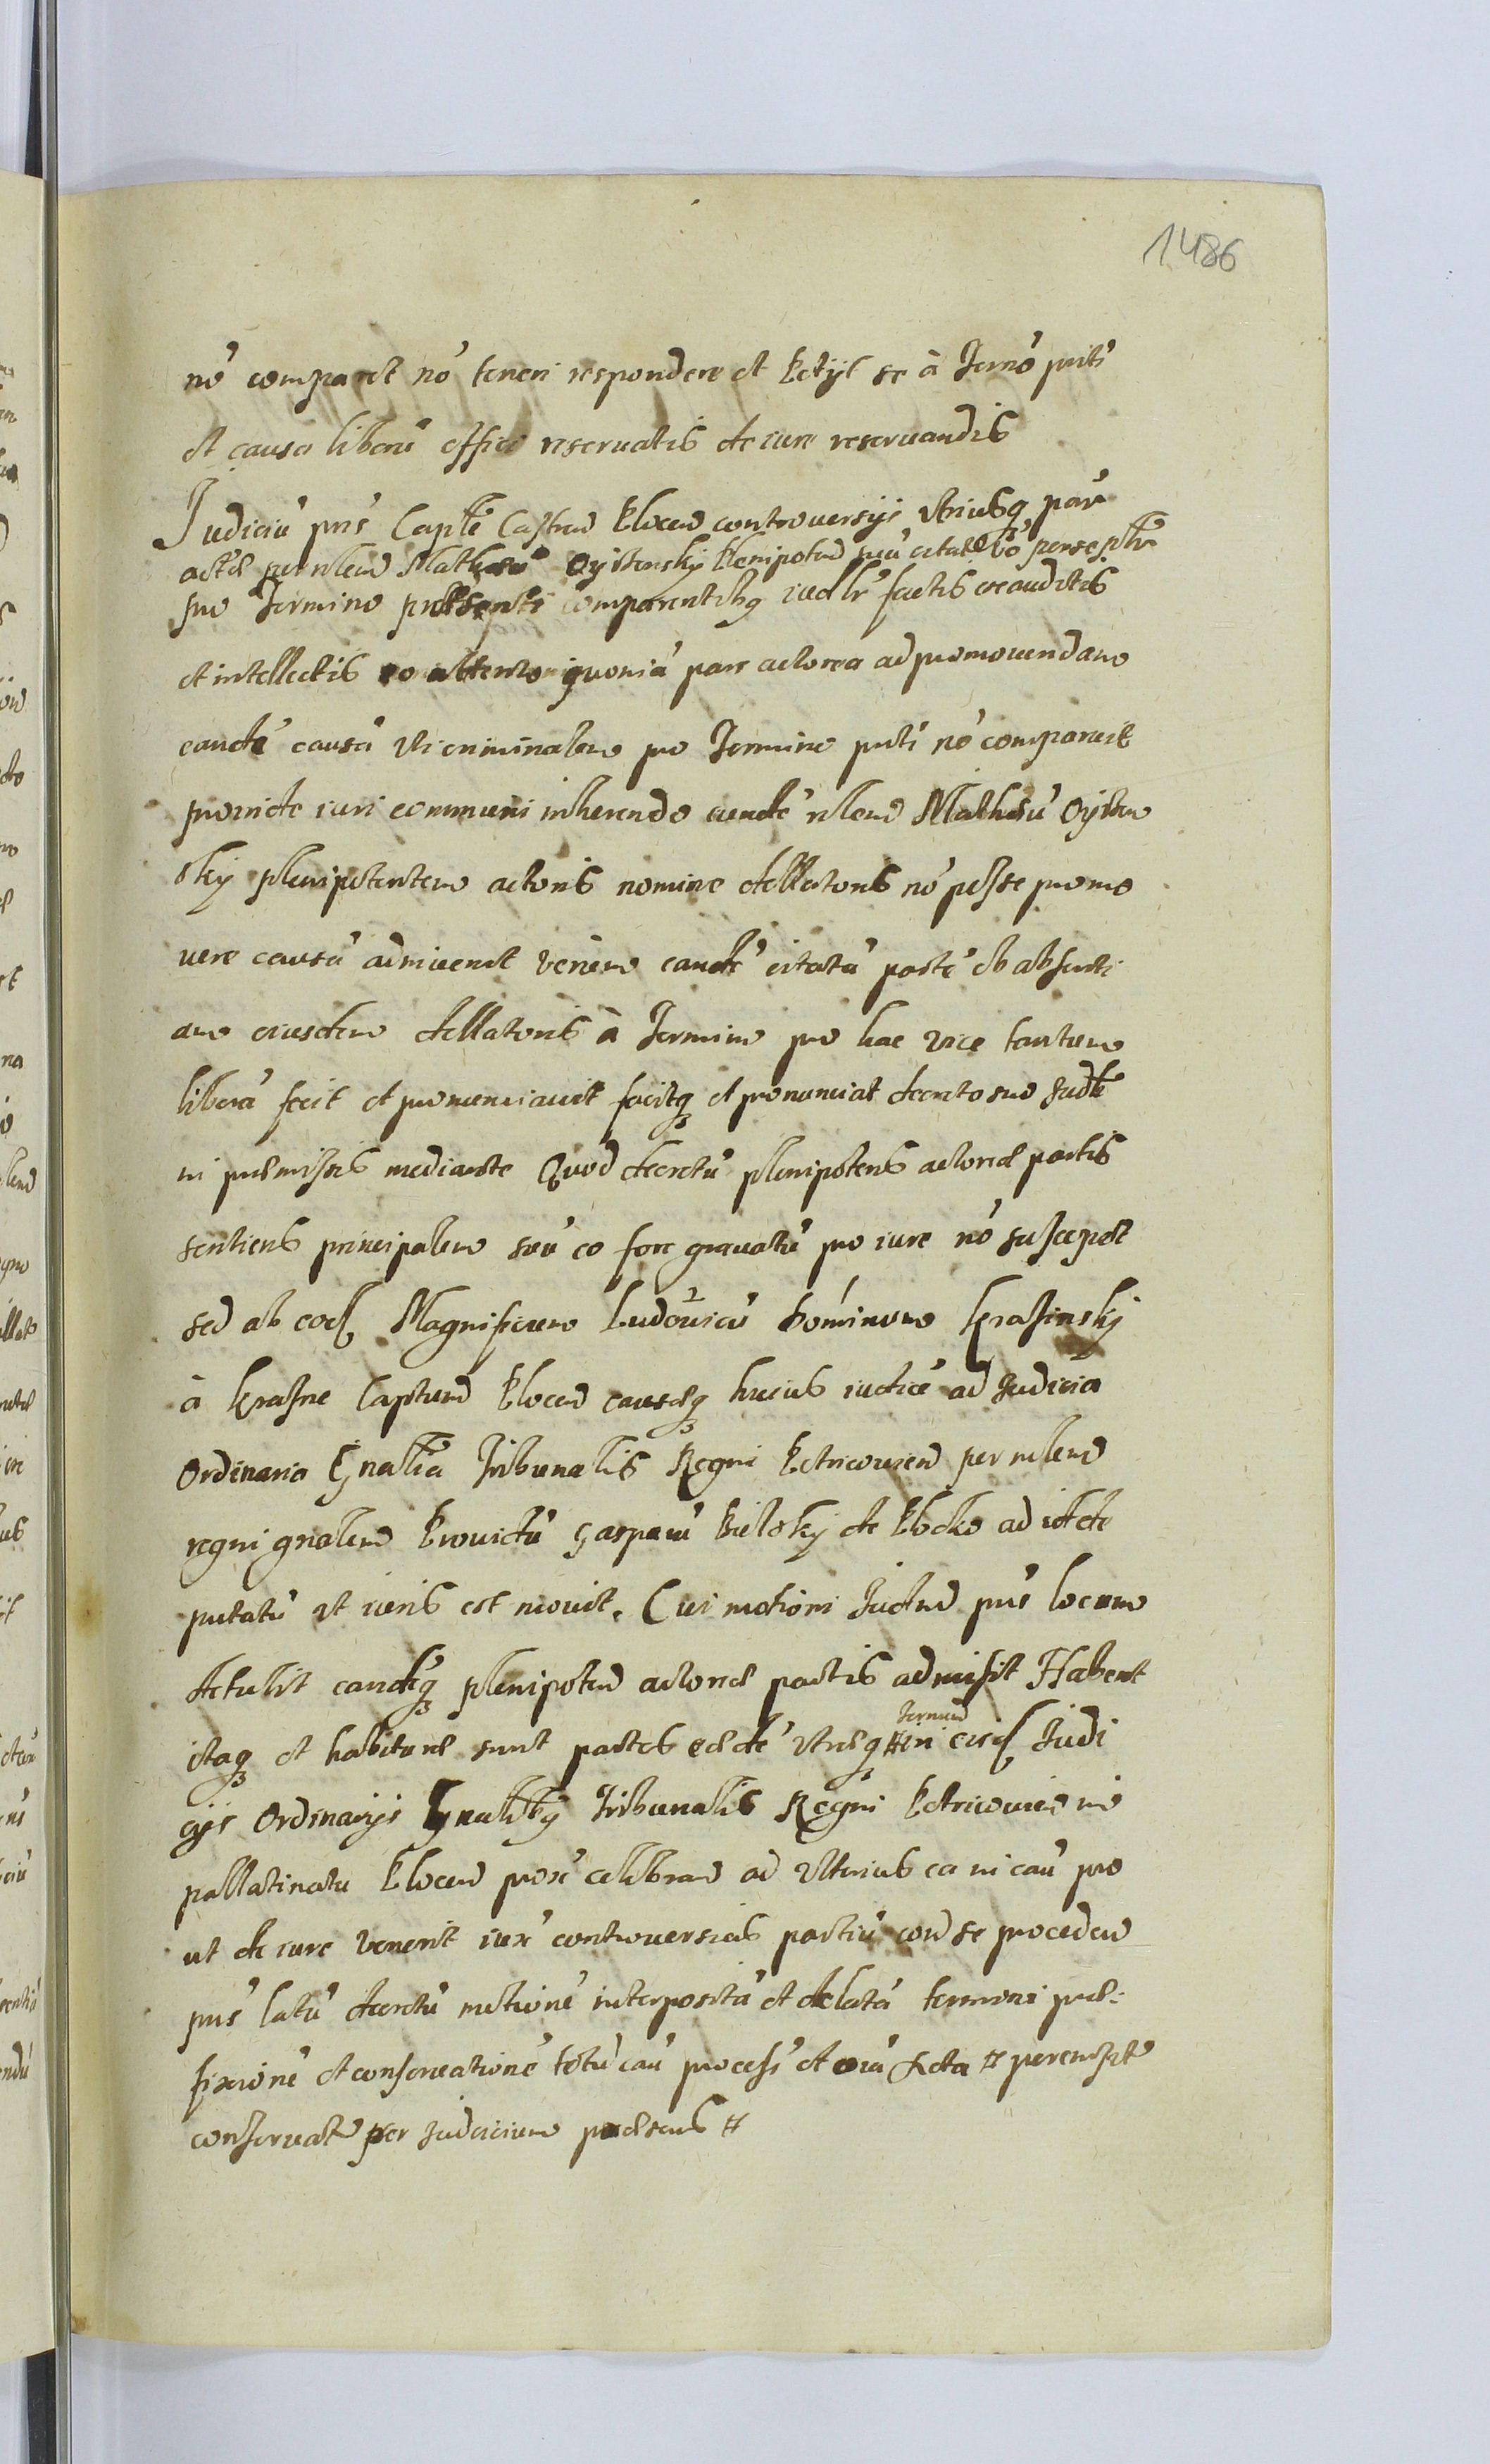 1486
nō comparet nō teneri respondere et Petijt se à Termō pnti
et causa liberū effici reservatis de iure reservandis
Judiciū pns Captle Castren Plocen controversijs utriusq par
act per nlem Mathesū Plenipoten suū citat vō per se
suo Termino presenti comparentibq iudlr factis exauditis
et intellectis eo attento quoniā pars actorea ad promovendam
eandē causā uti criminalem pro Termino pnti nō comparuit
proinde iuri communi inherendo eundē nlem Mathesū
sky plenipotentem actoris nomine dellatoris nō posse promo
vere causā adinvenit verum eandē citatā partē ob absenti
am eiusdem dellatoris à Termino pro hac vice tantum
liberā fecit et pronunciavit facitq et pronunciat decreto suo Judle
in premissis mediante Quod decretū plenipotens actore partis
sentiens principalem suū eo fore gravatū pro iure nō suscepit
sed ab eod Magnificum Ludovicū Dominum Krasinsky
à Krasne Capturen Plocen causæq huius iudicē ad Judicia
Ordinaria Gnalia Tribunalis Regni Petricovien per nlem
regni gnalem Provid Gasparū Bielsky de Plocko ad id de
putatū ut iuris est movit. Cui motioni Judm pns locum
detulit eandēq plenipoten actore partis admisit Habent
itaq et habituræ sunt partes eædē utræq # in eisd Judi
Termin
cijs Ordinarijs Gnalibq Tribunalis Regni Petricovien in
pallatinatu Plocen prox celebran ad ulterius ea in cau pro
ut de iure venerit iux controversias partiū corā se proceden
pns latū decretū motionē interpositā et delatā termini præ-
fixionē et conservationē totū cau process et oia Acta #
conservat per Judicium præsens #